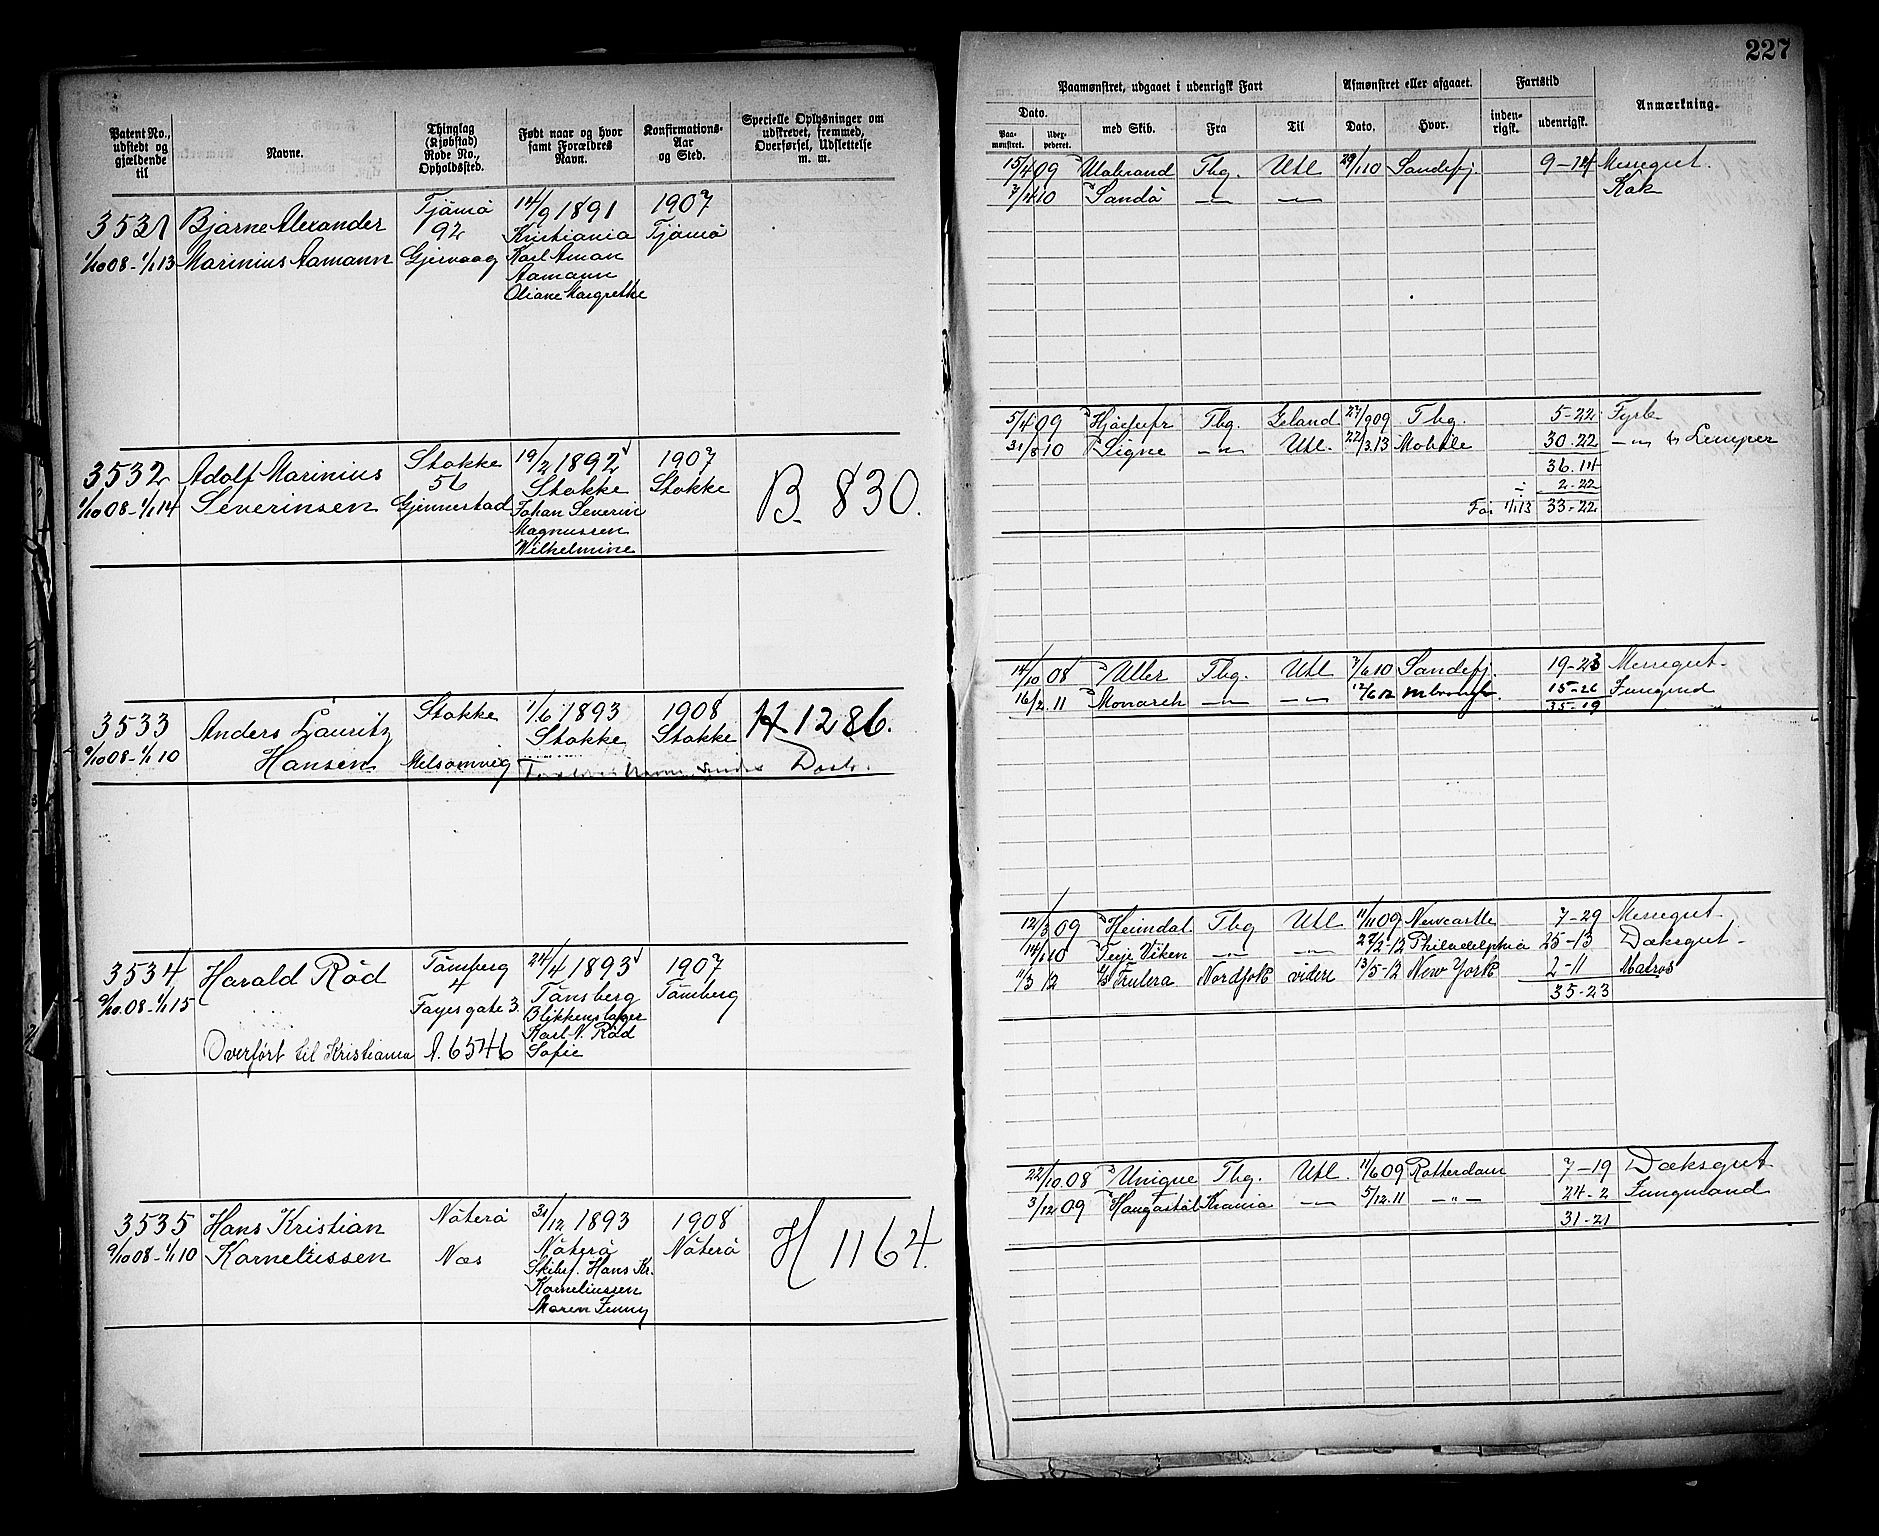 Patent No., udstedt og gjældende til
Navne.
Thinglag (Kjøbstad) Rode No., Opholdssted.
Født naar og hvor samt Forældres Navn.
Konfirmations-Aar og Sted.
Specielle Oplysninger om udskrevet, fremmed, Overførsel, Udslettelse m. m.
3531 Bjarne Alexander Tjømö 14/9 1891 1907
92 Kristiania Tjømö
1/10 08 - 1/1 13 Marinius Aamann Gjervaag Karl Aman
Aamann
Oliane Margrethe
3532 Adolf Marinius Stokke 19/2 1892 1907
56 Stokke Stokke B. 830.
1/10 08 - 1/1 14 Severinsen Gjennestad Johan Severin
Magnussen
Wilhelmine
3533 Anders Lauritz Stokke 1/6 1893 1908 H 1286.
Stokke Stokke
9/10 08 - 1/1 10 Hansen Melsomvig
3534 Harald Röd Tönsberg 24/4 1893 1907
4 Tönsberg Tönsberg
9/10 08 - 1/1 15 Fayes gate 3. Blikkenslager
Karl N. Röd
Overført til Kristiania A. 6546 Sofie
3535 Hans Kristian Nöterö 31/12 1893 1908 H 1164.
9/10 08 - 1/1 10 Korneliussen Næs Nöterö Nöterö
Skibsf. Hans Kr.
Korneliussen
Maren Jenny
227
Paamønstret, udgaaet i udenrigsk Fart
Afmønstret eller afgaaet.
Fartstid
Anmærkning.
Dato.
Paa-mønstret.
med Skib.
Fra
Til
Dato.
Hvor.
inden-rigsk.
udenrigsk.
15/4 09 Ulabrand Tbg. Utl 29/1 10 Sandefj. 9-14 Messegut.
7/4 10 Sandö -"- -"- Kok
5/4 09 Tbg. 27/9 09 Tbg. 5-22 Fyrb
31/8 10 Signe -"- Utl. 22/3.13 Mobile 30.22 -"- & Lemper
36.14
÷ 2-22
1/1 13 33-22
14/10 08 Uller Tbg. Utl 7/6 10 Sandefj. 19-23 Messegut.
16/2 11 Monarch -"- -"- 12/6 12 15-26 Jungmd
35-19
12/3 09 Heimdal Tbg Utl 11/11 09 Newcastle 7-29 Messegut.
14/1 10 Terje Viken -"- -"- 27/2-12 Philadelphia 25-13 Dæksgut.
11/3 12 Nordfolk videre 13/5-12 New York 2-11 Matros
35-23
22/10 08 Unique Tbg. Utl. 11/6 09 Rotterdam 7-19 Dæksgut
3/12 09 Haugastöl Krania -"- 5/12.11 -"- 24-2 Jungmand
31-21